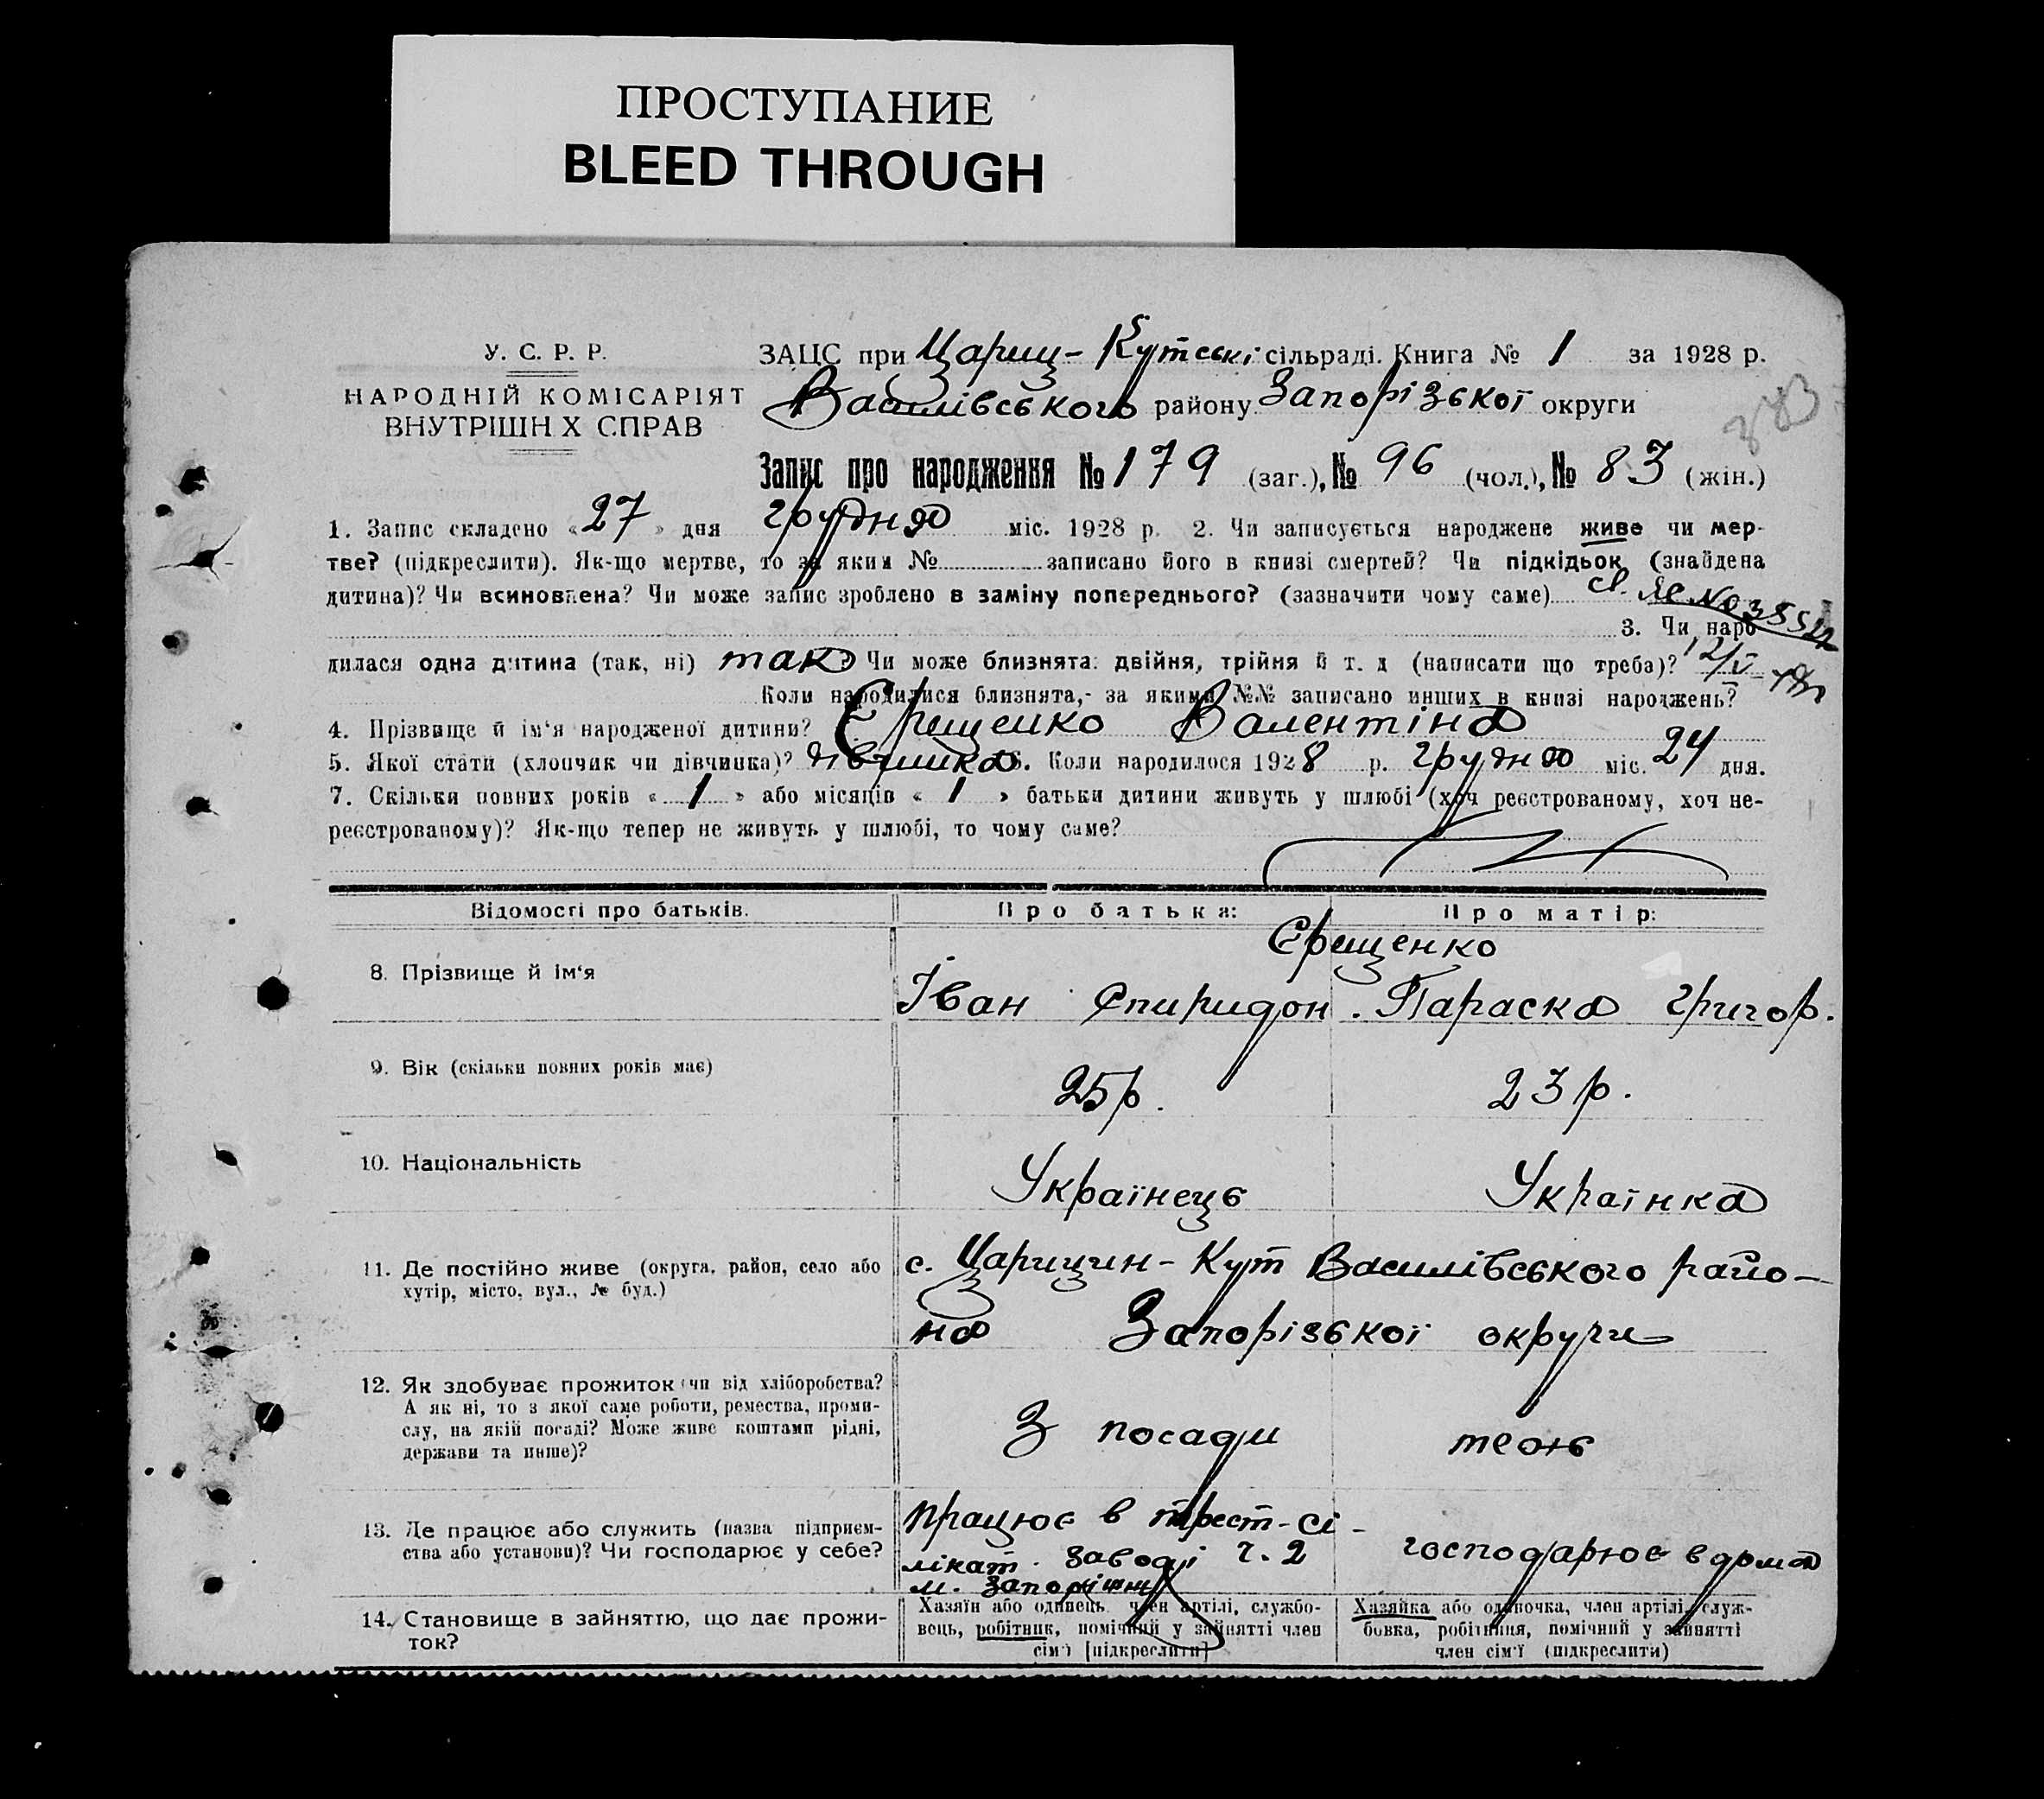 ПРОСТУПАНИЕ
BLEED THROUGH
У. С. Р. Р.
НАРОДНІЙ КОМІСАРІЯТ
ВНУТРІШН Х СПРАВ
ЗАЦС при Цариц-Кутські сільраді. Книга № 1 за 1928 р.
Василівського району Запорізької округи
383
Запис про народження № 179 (заг.), № 96 (чол.), № 83 (жін.)
1. Запис складено «27» дня грудня міс. 1928 р. 2. Чи записується народжене живе чи мер-
тве? (підкреслити). Як-що мертве, то за яким № записано його в книзі смертей? Чи підкідьок (знайдена
дитина)? Чи всиновлена? Чи може запис зроблено в заміну попереднього? (зазначити чому саме)
3. Чи наро
дилася одна дитина (так, ні) так Чи може близнята: двійня, трійня й т. д (написати що треба)?
Коли народилися близнята,- за якими №№ записано инших в книзі народжень?
4. Прізвище й ім'я народженої дитини? Єрещенко Валентіна
5. Якої стати (хлопчик чи дівчинка)? дівчинка 6. Коли народилося 1928 р. грудня міс. 24 дня.
7. Скільки повних років «1» або місяців «1» батьки дитини живуть у шлюбі (хоч реєстрованому, хоч не-
реєстрованому)? Як-що тепер не живуть у шлюбі, то чому саме?
Відомості про батьків. Про батька: Про матір:
Єрещенко
8. Прізвище й ім'я Іван Спиридон. Параска Григор.
9. Вік (скільки повних років має) 25р. 23р.
10. Національність Українець Українка
11. Де постійно живе (округа, район, село або
хутір, місто, вул., № буд.)
с. Царицин-Кут Василівського райо-
на Запорізької округи
12. Як здобуває прожиток (чи від хліборобства?
А як ні, то з якої саме роботи, ремества, проми-
слу, на якій посаді? Може живе коштами рідні,
держави та инше)?
З посади теж
13. Де працює або служить (назва підприєм-
ства або установи)? Чи господарює у себе?
працює в трест-сі-
лікат. заводі ч. 2
м. Запоріжжі
господарює вдома
14. Становище в зайняттю, що дає прожи-
ток?
Хазяїн або одинець, член артілі, службо-
вець, робітник, помічний у зайнятті член
сім'ї [підкреслити]
Хазяйка або одиночка, член артілі, служ-
бовка, робітниця, помічний у зайнятті
член сім'ї (підкреслити)